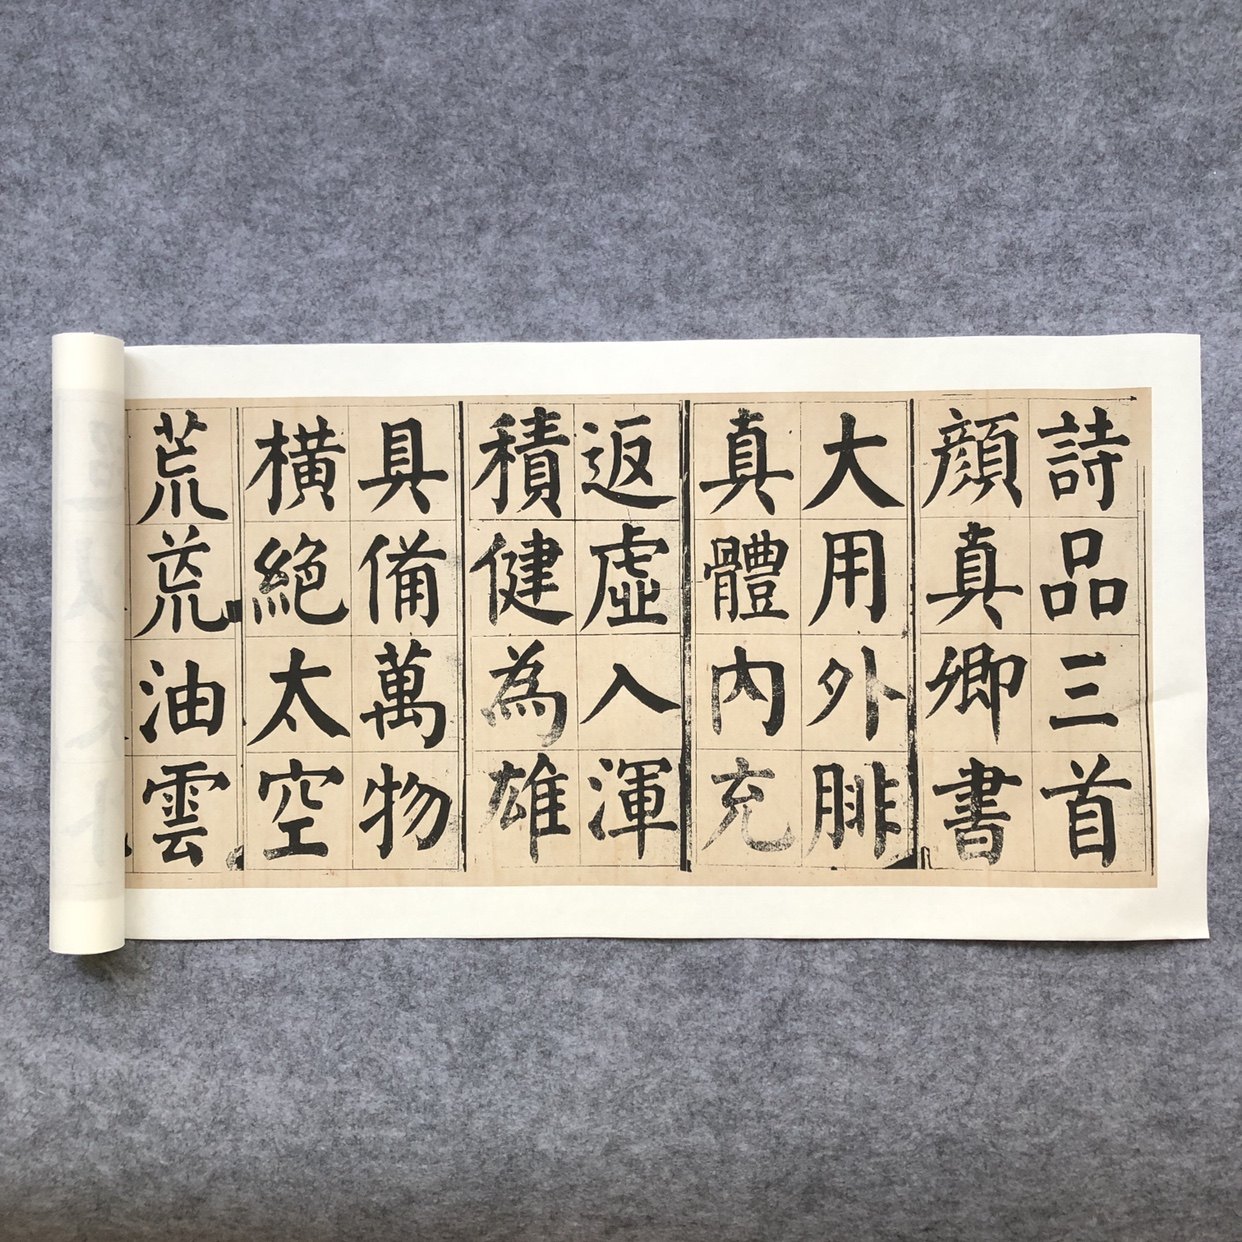 詩品三首
顔真卿書
大用外腓
真體內充
返虛入渾
積健為雄
具備萬物
橫絕太空
荒荒油雲